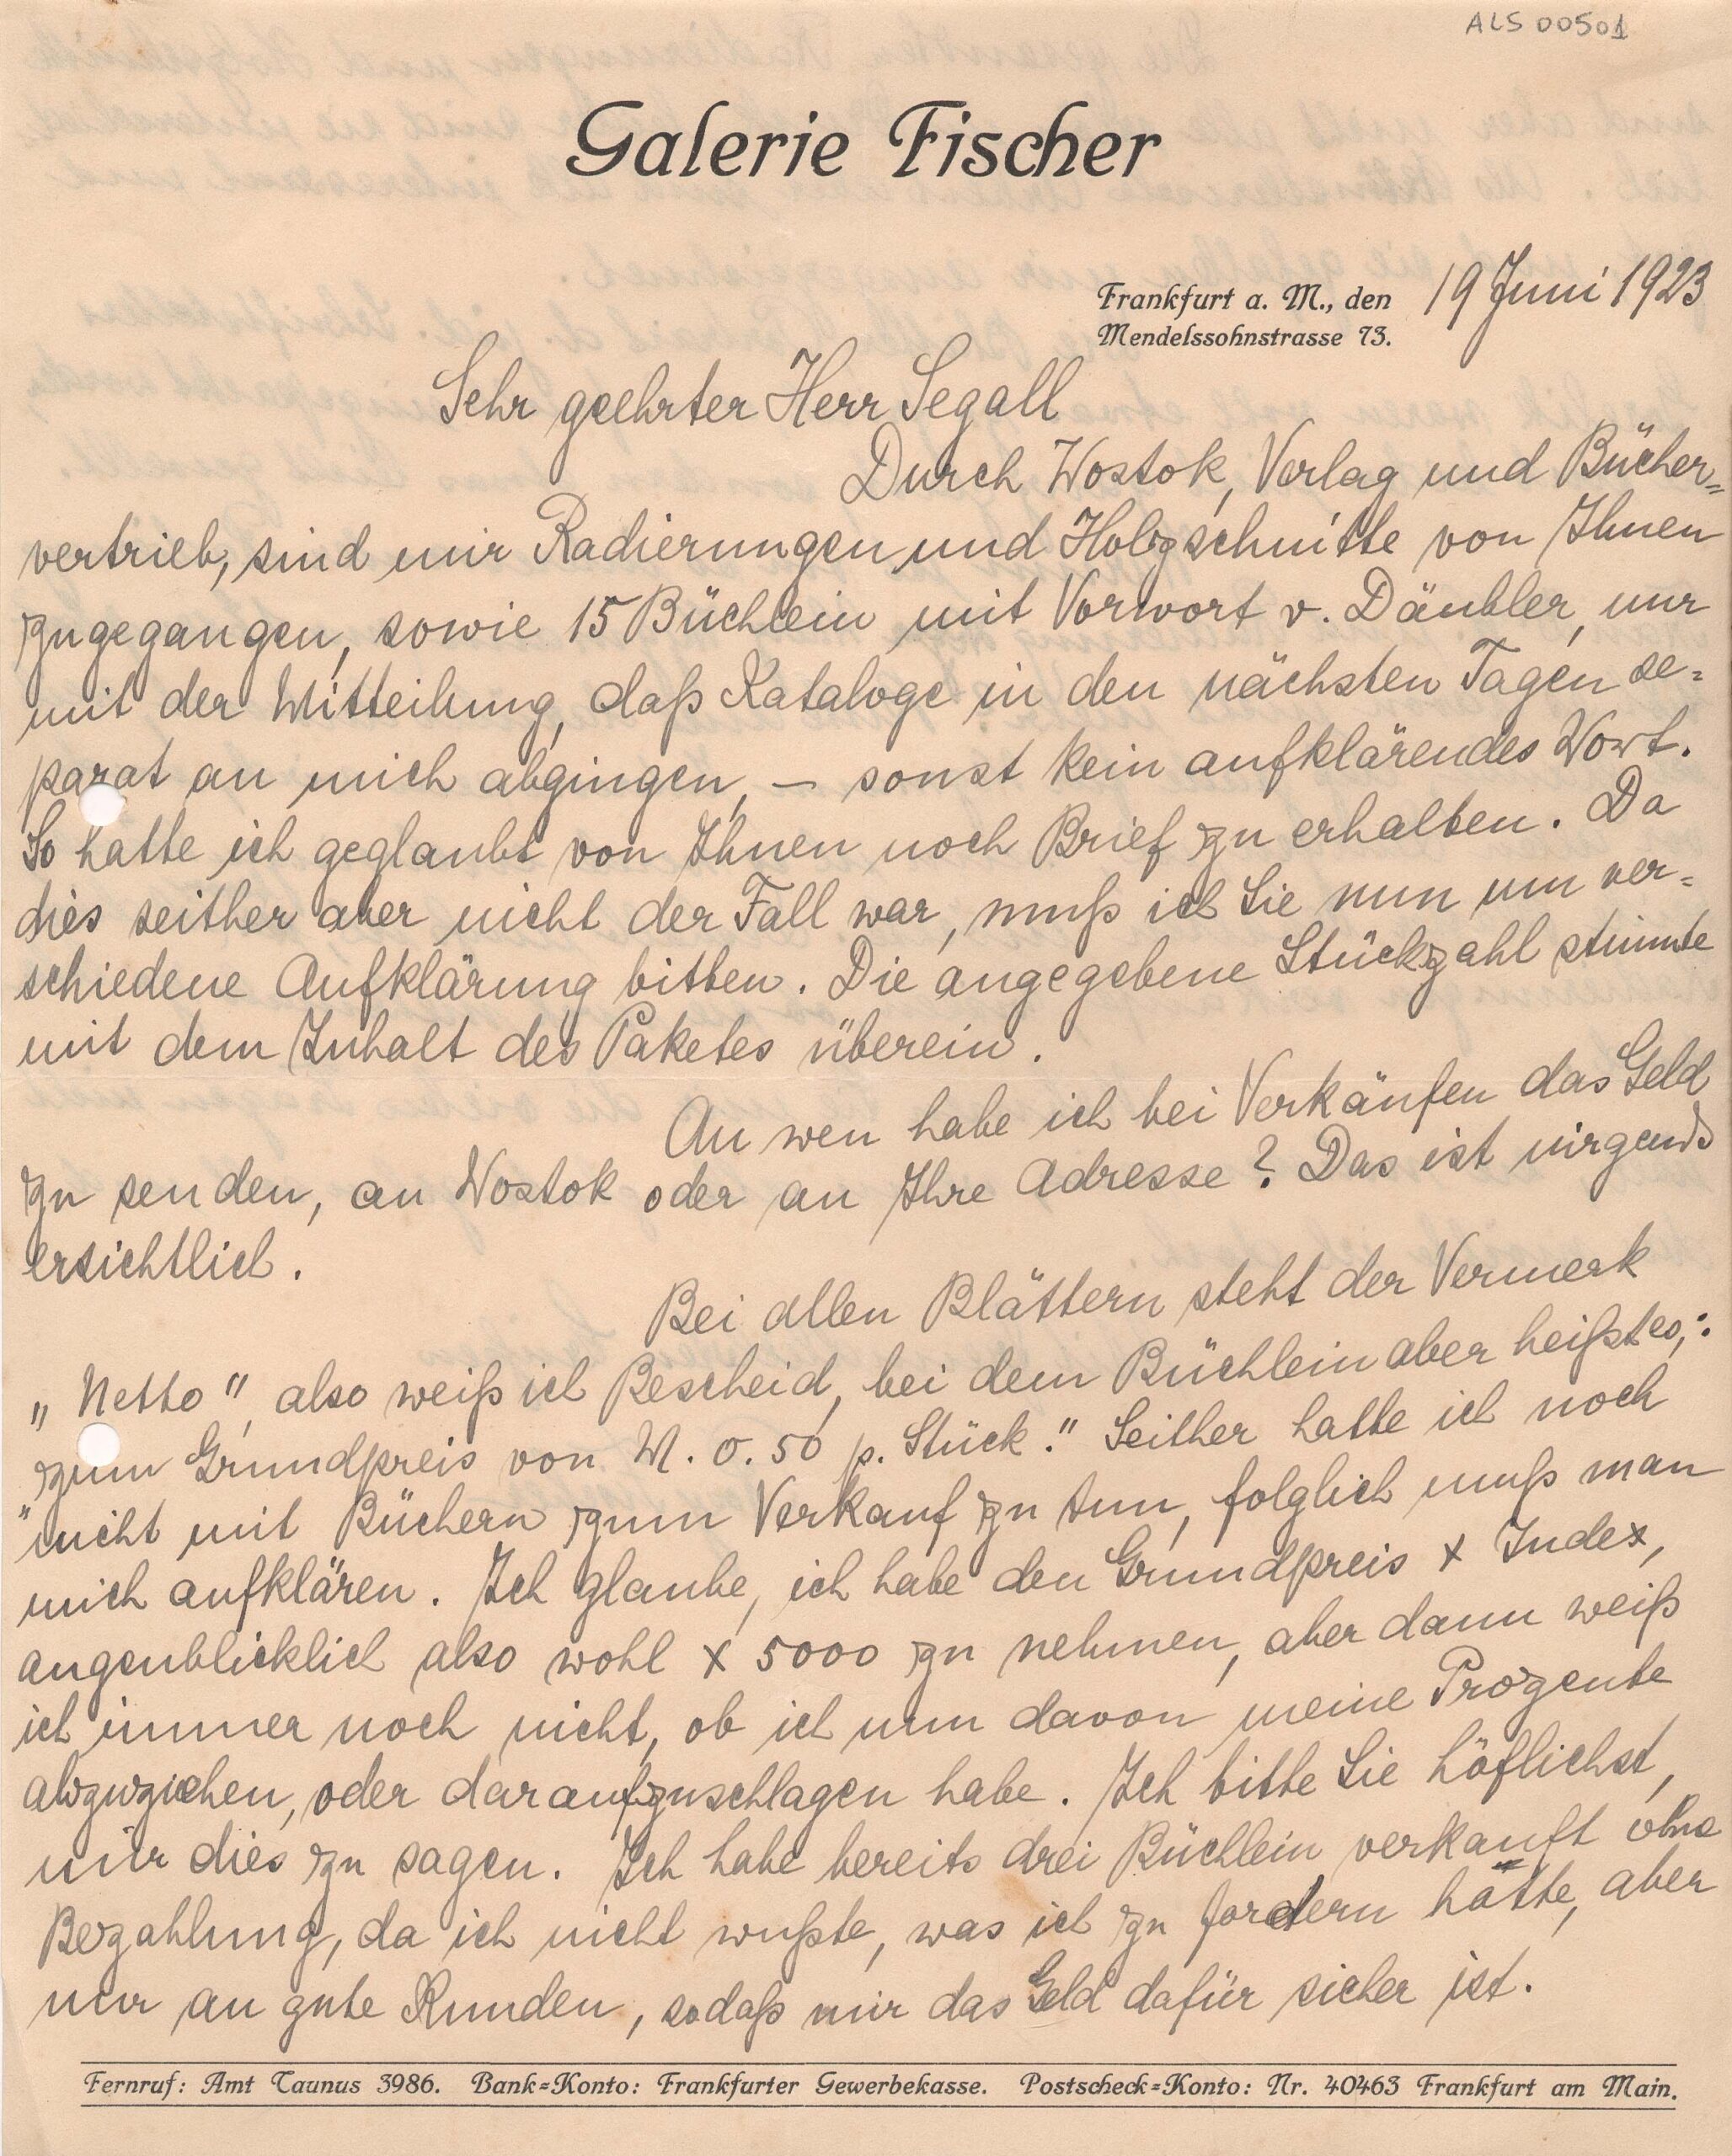 ALS 00501
Galerie Fischer
Frankfurt a. M., den 19 Juni 1923
Mendelssohnstrasse 73.
Sehr geehrter Herr Segall
Durch Wostok, Verlag und Bücher=
vertrieb, sind mir Radierungen und Holzschnitte von Ihnen
zugegangen, sowie 15 Büchlein mit Vorwort v. Däubler, nur
mit der Mitteilung, daß Kataloge in den nächsten Tagen se=
parat an mich abgingen, – sonst kein aufklärendes Wort.
So hatte ich geglaubt von Ihnen noch Brief zu erhalten. Da
dies seither aber nicht der Fall war, muß ich Sie nun um ver=
schiedene Aufklärung bitten. Die angegebene Stückzahl stimmte
mit dem Inhalt des Paketes überein.
An wen habe ich bei Verkäufen das Geld
zu senden, an Wostok oder an Ihre Adresse? Das ist nirgends
ersichtlich.
Bei allen Blättern steht der Vermerk
„Netto", also weiß ich Bescheid, bei dem Büchlein aber heißt es,:
„zum Grundpreis von M. 0.50 p. Stück." Seither hatte ich noch
nicht mit Büchern zum Verkauf zu tun, folglich muß man
mich aufklären. Ich glaube, ich habe den Grundpreis x Index,
augenblicklich also wohl x 5000 zu nehmen, aber dann weiß
ich immer noch nicht, ob ich nun davon meine Prozente
abzuziehen, oder daraufzuschlagen habe. Ich bitte Sie höflichst,
mir dies zu sagen. Ich habe bereits drei Büchlein verkauft ohne
Bezahlung, da ich nicht wußte, was ich zu fordern hätte, aber
nur an gute Kunden, sodaß mir das Geld dafür sicher ist.
Fernruf: Amt Taunus 3986. Bank=Konto: Frankfurter Gewerbekasse. Postscheck=Konto: Nr. 40463 Frankfurt am Main.